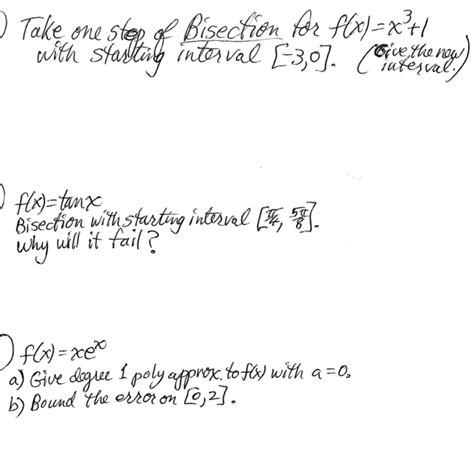 ) Take one step of Bisection for f(x)=x³+1
with starting interval [-3,0]. (Give the new
interval.)
) f(x)=tanx
Bisection with starting interval [π/4, 5π/6].
Why will it fail?
) f(x)=xeˣ
a) Give degree 1 poly approx. to f(x) with a=0.
b) Bound the error on [0,2].